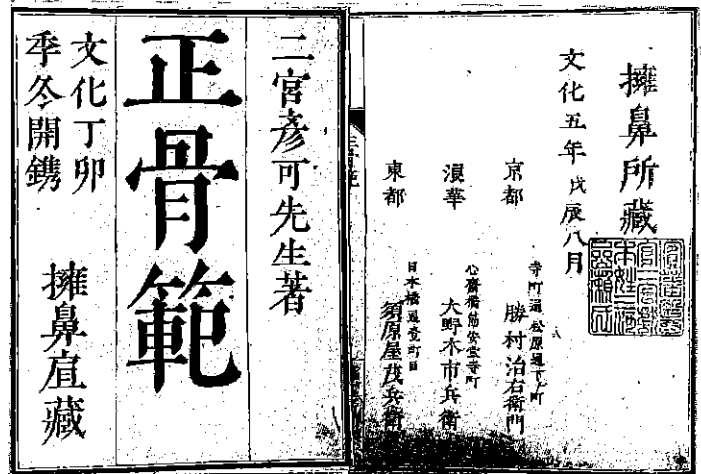 擁鼻所藏
文化五年戊辰八月
京都
寺町通松原通下ル町
勝村治右衛門
浪華
心齋橋筋安堂寺町
大野木市兵衛
東都
日本橋通壹町目
須原屋茂兵衛
二宮彥可先生著
正骨範
文化丁卯
季冬開鐫
擁鼻亝藏